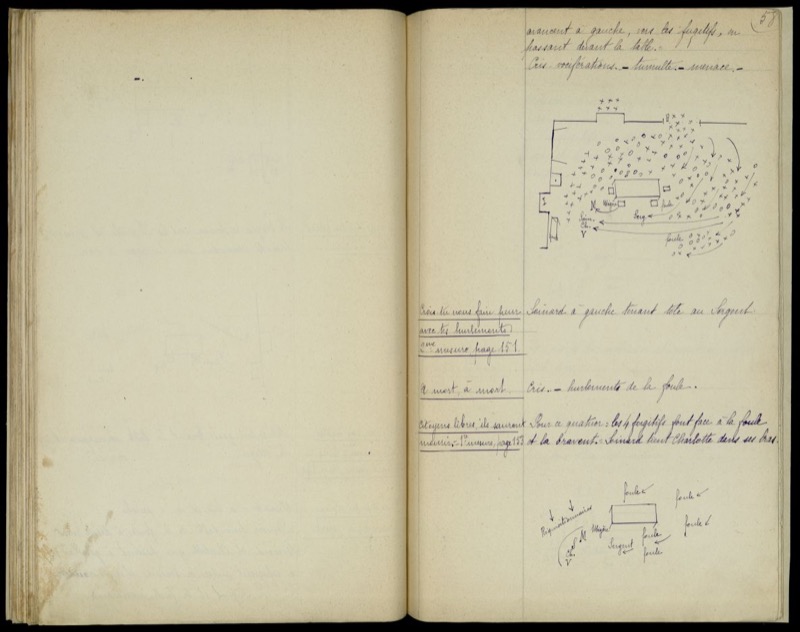 58
avancent à gauche, vers les fugitifs, en
passant devant la table.-
Cris vociférations.- tumulte.- menace.-
M
Ch.
V
Serg
foule
foule
Crois-tu nous faire peur
avec tes hurlements
2me mesure, page 151.
Loinard à gauche tenant tête au Sergent
A mort, à mort.
Cris.- hurlements de la foule.
Citoyens libres, ils sauront
mourir.- 1re mesure, page 153
Pour ce quatuor: les 4 fugitifs font face à la foule
et la bravent. Loinard tient Charlotte dans ses bras.
foule
foule
foule
Réquisitionnaires
M
Ch
V
Sergent
foule
foule